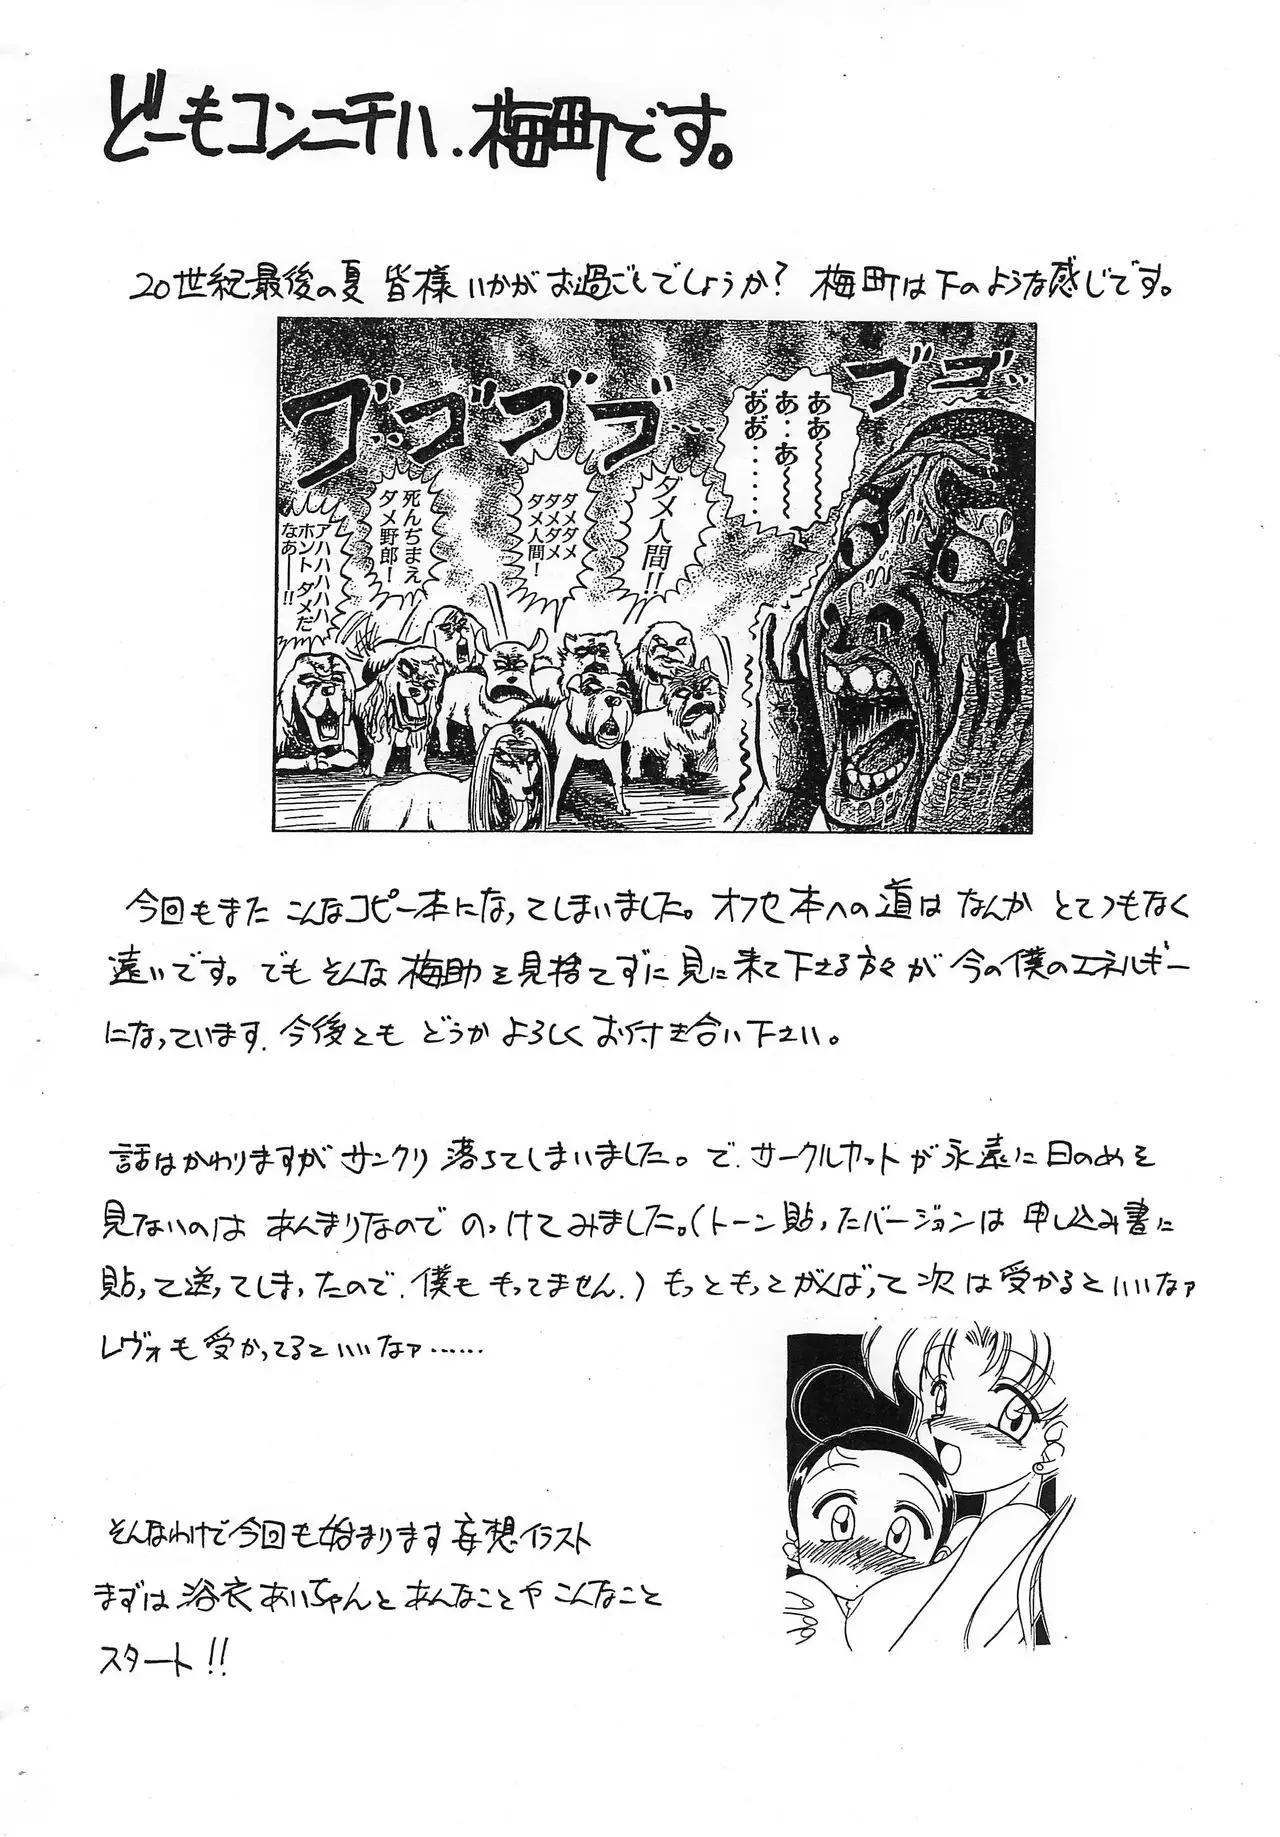 どーもコンニチハ、梅町です。
20世紀最後の夏 皆様いかがお過ごしでしょうか? 梅町は下のような感じです。
ゴゴ‥
ああ〜〜〜
あ‥あ〜〜
あ゛あ゛‥‥‥
ゴゴゴゴ‥‥
ダメ人間!!
ダメダメ
ダメダメ
ダメ人間!
死んぢまえ
ダメ野郎!
アハハハハハ
ホントダメだ
なあ——!!
今回もまた こんなコピー本になってしまいました。オフセ本への道は なんか とてつもなく
遠いです。でも そんな 梅助を見捨てずに見に来て下さる方々が 今の僕のエネルギー
になっています。今後とも どうか よろしく お付き合い下さい。
話はかわりますがサンクリ 落ちてしまいました。で、サークルカットが永遠に日のめを
見ないのは あんまりなので のっけてみました。(トーン貼ったバージョンは 申し込み書に
貼って送ってしまったので、僕も もってません。) もっともっとがんばって 次は受かるといいなァ
レヴォも受かってるといいなァ……
そんなわけで今回も始まります妄想イラスト
まずは浴衣あいちゃんと あんなことや こんなこと
スタート!!